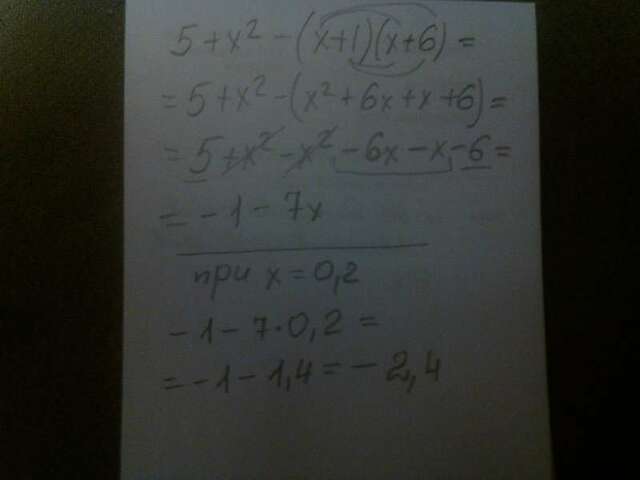 5+x²-(x+1)(x+6)=
=5+x²-(x²+6x+x+6)=
=5+x²-x²-6x-x-6=
=-1-7x
при x=0,2
-1-7·0,2=
=-1-1,4=-2,4